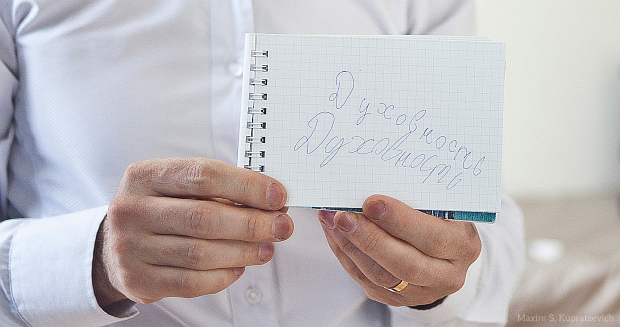 Духовность
Духовность
Maxim S. Kupratsevich